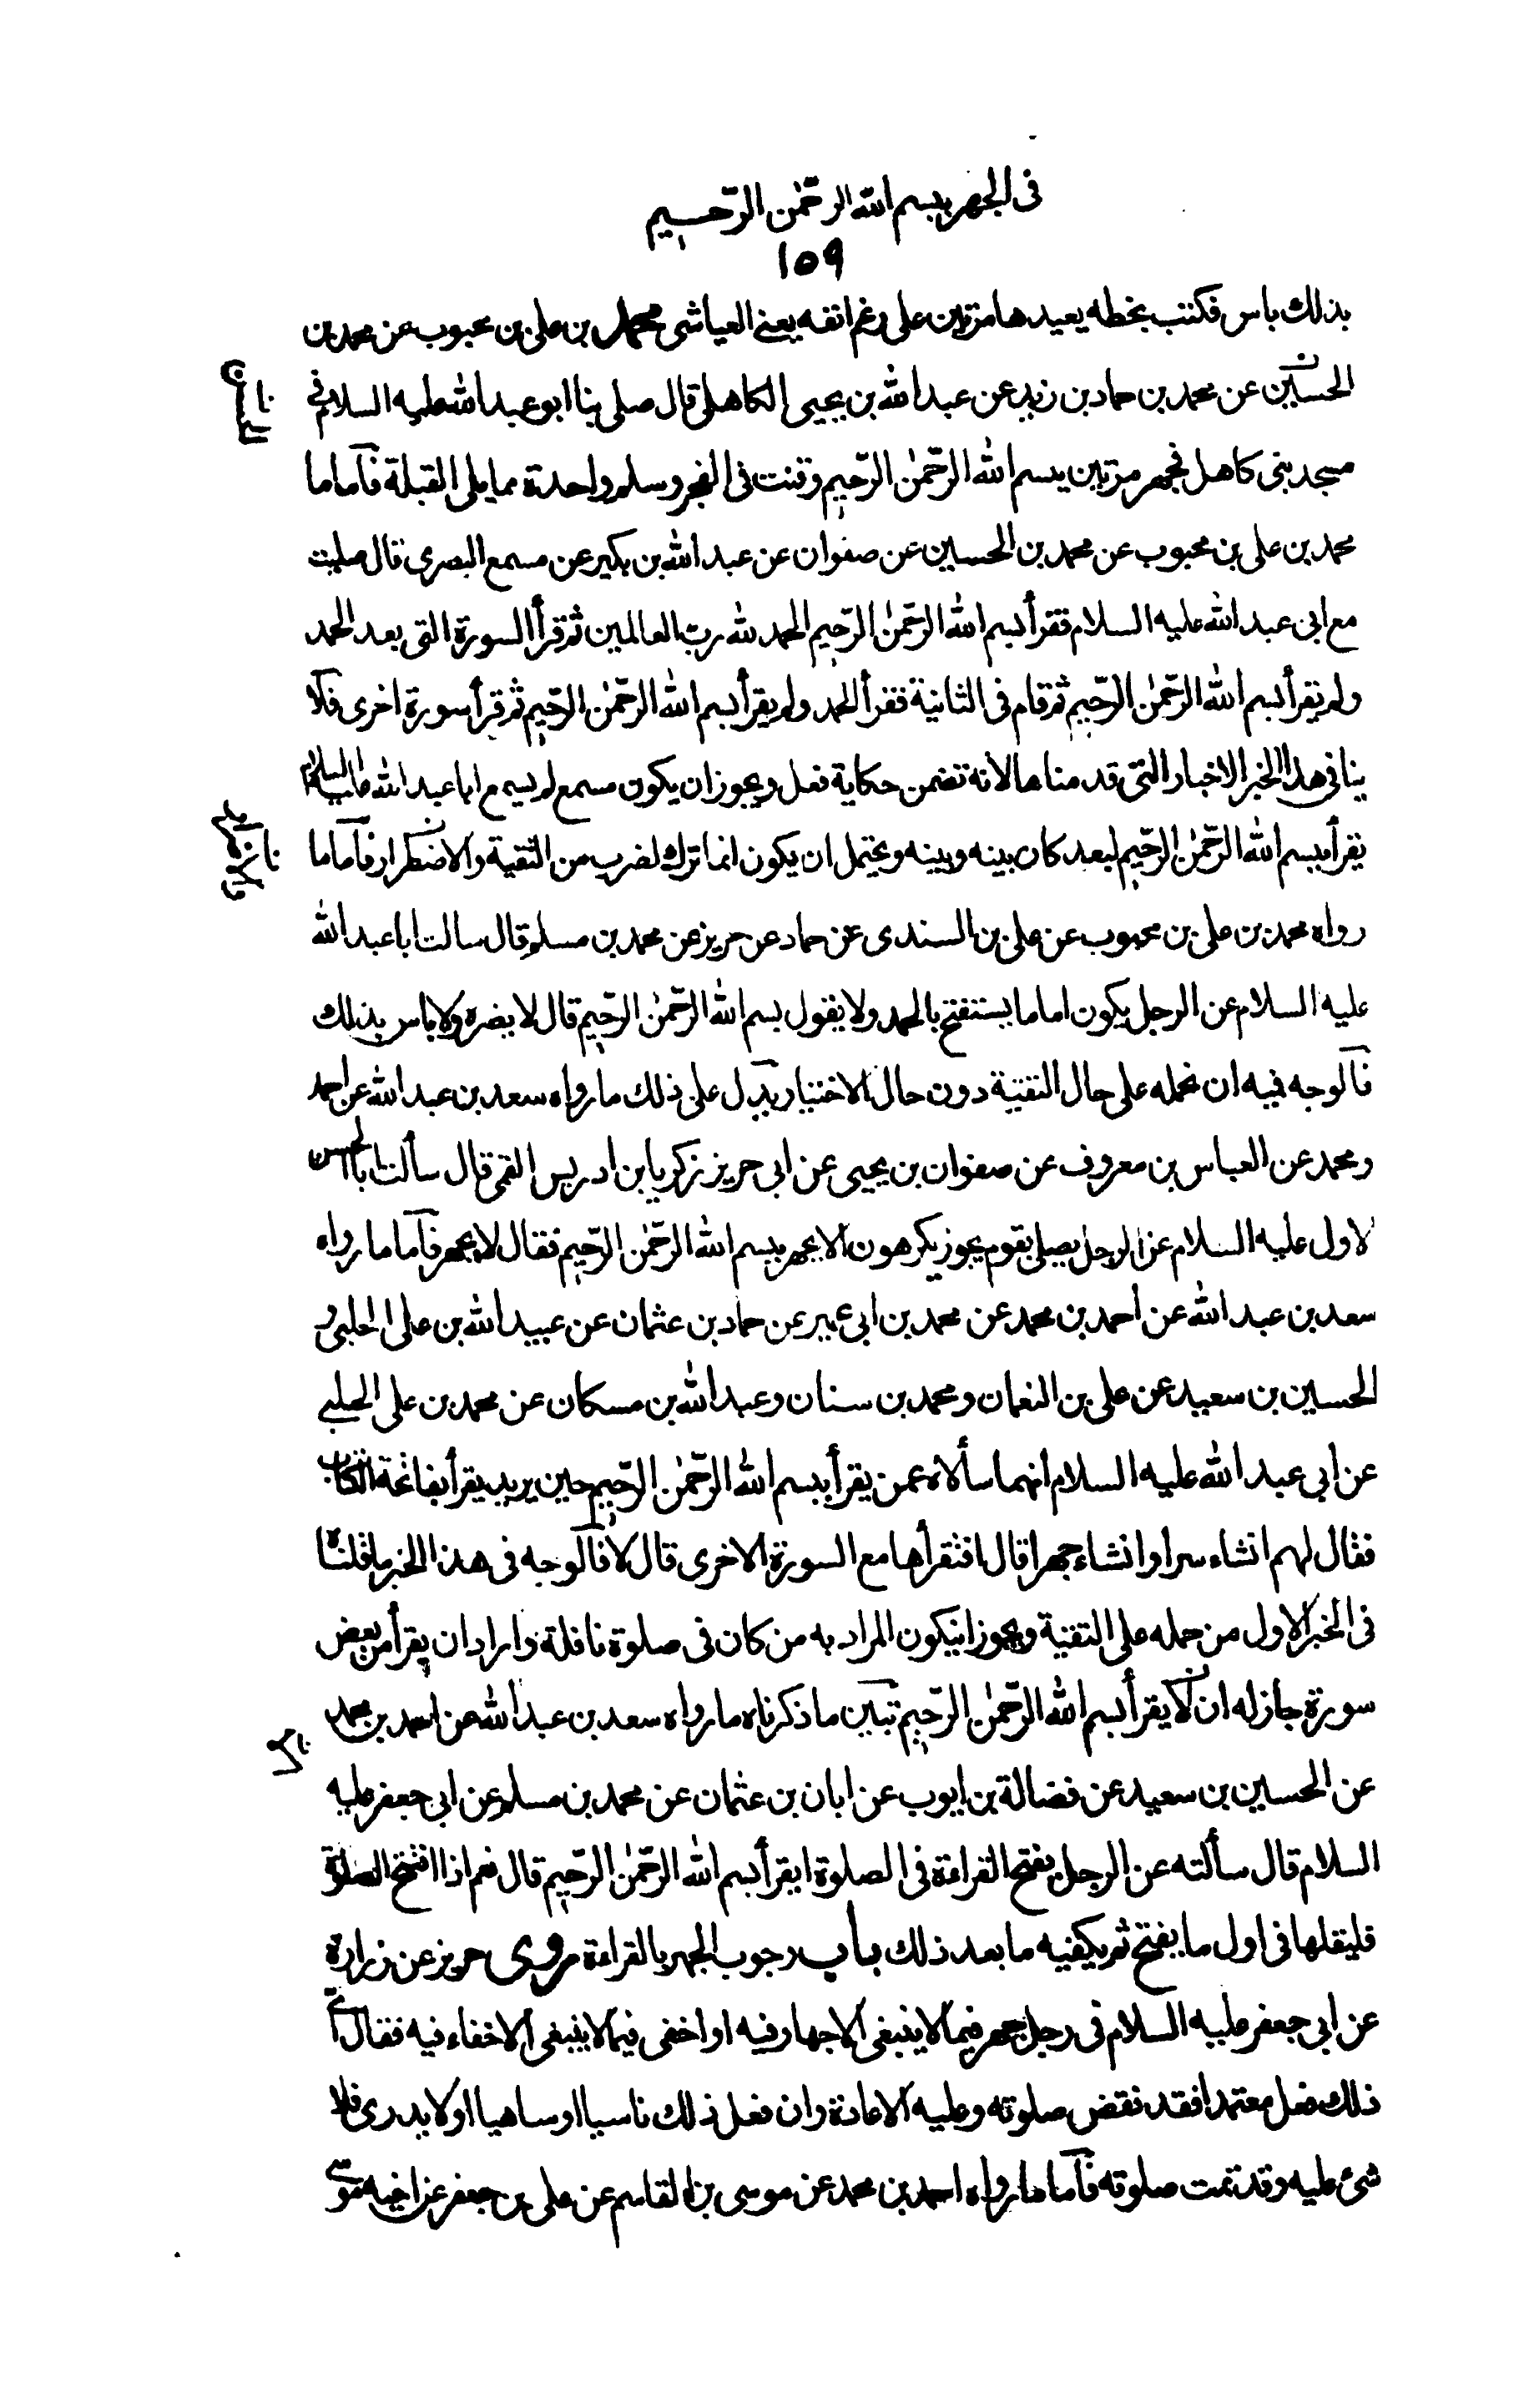 فى الجهر ببسم الله الرحمٰن الرحيم
١٥٩
بذلك باس فكتب بخطه يعيدها مرتين على رغم انفه يعنى العياشى محمد بن على بن محبوب عن محمد بن
الحسين عن محمد بن حماد بن زيد عن عبد الله بن يحيى الكاهلى قال صلى بنا ابو عبد الله عليه السلام فى
مسجد بنى كاهل فجهر مرتين ببسم الله الرحمٰن الرحيم وقنت فى الفجر وسلم واحدة مما يلى القبلة فآما ما
محمد بن على بن محبوب عن محمد بن الحسين عن صفوان عن عبد الله بن بكير عن مسمع البصرى قال صليت
مع ابى عبد الله عليه السلام فقرأ بسم الله الرحمٰن الرحيم الحمد لله رب العالمين ثم قرأ السورة التى بعد الحمد
ولم يقرأ بسم الله الرحمٰن الرحيم ثم قام فى الثانية فقرأ الحمد ولم يقرأ بسم الله الرحمٰن الرحيم ثم قرأ سورة اخرى فلا
ينافى هذا الخبر الاخبار التى قدمناها لانه تضمن حكاية فعل ويجوز ان يكون مسمع لم يسمع ابا عبد الله عليه السلام
يقرأ ببسم الله الرحمٰن الرحيم لبعد كان بينه وبينه ويحتمل ان يكون انما ترك لضرب من التقية والاضطرار فآما ما
رواه محمد بن على بن محبوب عن على بن السندى عن حماد عن حريز عن محمد بن مسلم قال سالت ابا عبد الله
عليه السلام عن الرجل يكون اماما يستفتح بالحمد ولا يقول بسم الله الرحمٰن الرحيم قال لا يضره ولا باس بذلك
فآلوجه فيه ان نحمله على حال التقية دون حال الاختيار يدل على ذلك ما رواه سعد بن عبد الله عن احمد
ومحمد عن العباس بن معروف عن صفوان بن يحيى عن ابى حريز زكريا بن ادريس القمى قال سألت ابا الحسن
لاول عليه السلام عن الرجل يصلى بقوم يجوز يكرهون الا يجهر ببسم الله الرحمٰن الرحيم فقال لا يجهر فآما ما رواه
سعد بن عبد الله عن احمد بن محمد عن محمد بن ابى عمير عن حماد بن عثمان عن عبيد الله بن على الحلبى و
الحسين بن سعيد عن على بن النعمان ومحمد بن سنان وعبد الله بن مسكان عن محمد بن على الحلبى
عن ابى عبد الله عليه السلام انهما سألاه عمن يقرأ ببسم الله الرحمٰن الرحيم حين يريد يقرأ بفاتحة الكتاب
فقال لهم انشاء سرا وانشاء جهرا قال افتقرأها مع السورة الاخرى قال لا فآلوجه فى هذا الخبر ما قلناه
فى الخبر الاول من حمله على التقية ويجوز انيكون المراد به من كان فى صلوة نافلة واراد ان يقرأ من بعض
سورة جاز له ان لا يقرأ بسم الله الرحمٰن الرحيم تبين ما ذكرناه ما رواه سعد بن عبد الله عن احمد بن محمد
عن الحسين بن سعيد عن فضالة بن ايوب عن ابان بن عثمان عن محمد بن مسلم عن ابى جعفر عليه
السلام قال سألته عن الرجل يفتح القراءة فى الصلوة ايقرأ بسم الله الرحمٰن الرحيم قال نعم اذا افتتح الصلوة
فليقلها فى اول ما يفتح ثم يكفيه ما بعد ذلك باب وجوب الجهر بالقراءة روى حريز عن زرارة
عن ابى جعفر عليه السلام فى رجل جهر فيما لا ينبغى الاجهار فيه او اخفى فيما لا ينبغى الاخفاء فيه فقال اى
ذلك فعل معتمدا فقد نقض صلوته وعليه الاعادة وان فعل ذلك ناسيا او ساهيا او لا يدرى فلا
شئ عليه وقد تمت صلوته فآما ما رواه احمد بن محمد عن موسى بن القاسم عن على بن جعفر عن اخيه موسى